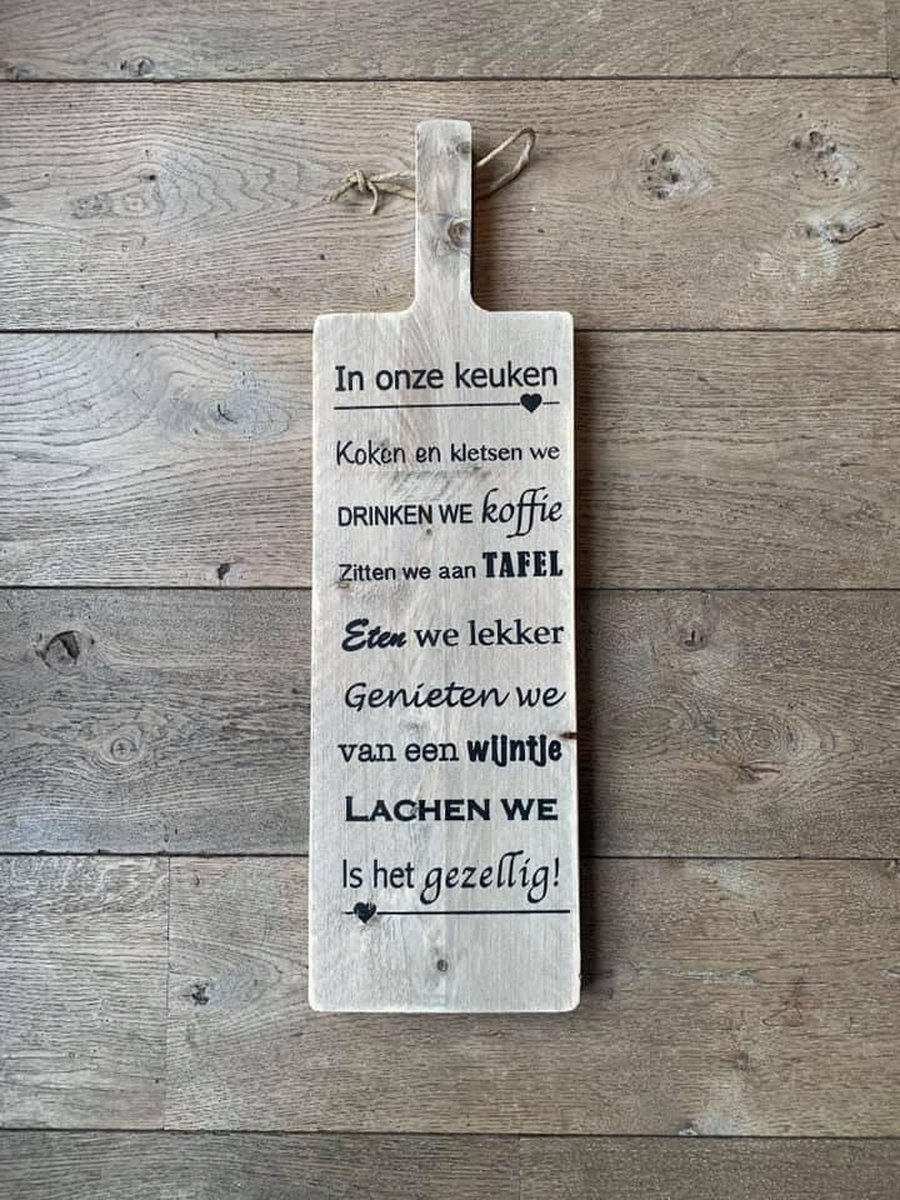 In onze keuken
Koken en kletsen we
DRINKEN WE koffie
Zitten we aan TAFEL
Eten we lekker
Genieten we
van een wijntje
LACHEN WE
Is het gezellig!